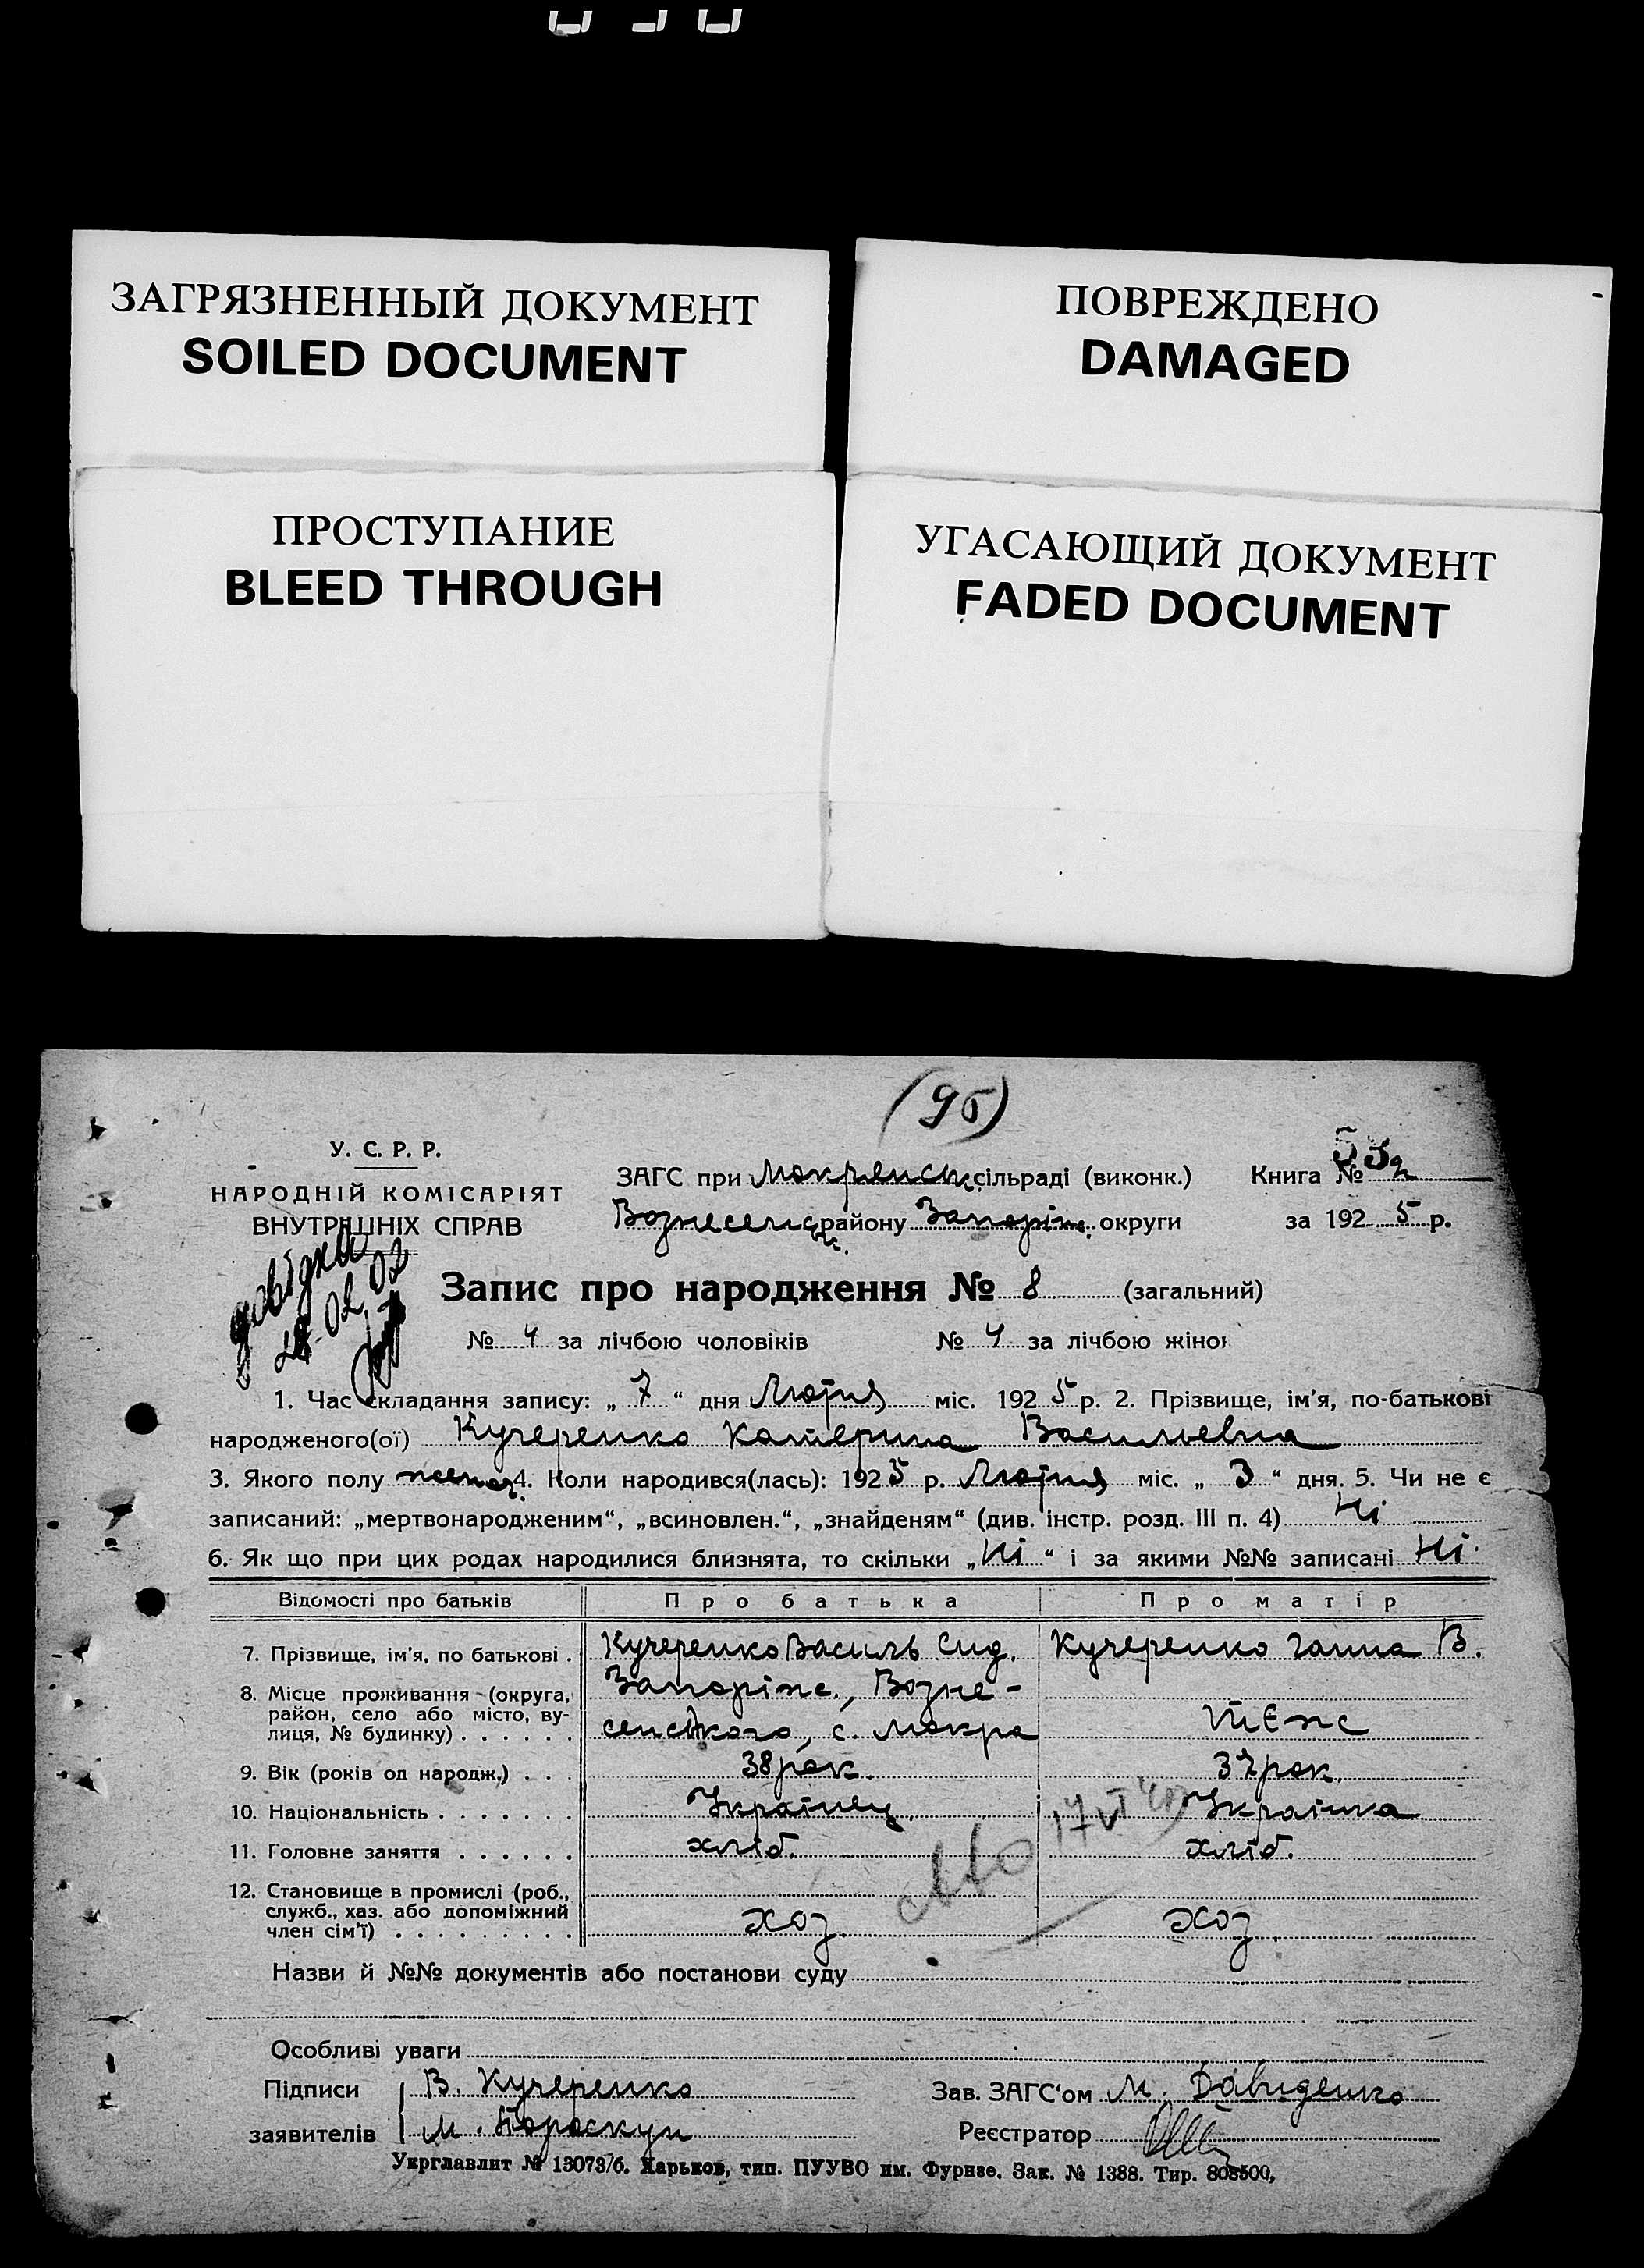 ЗАГРЯЗНЕННЫЙ ДОКУМЕНТ
SOILED DOCUMENT
ПОВРЕЖДЕНО
DAMAGED
ПРОСТУПАНИЕ
BLEED THROUGH
УГАСАЮЩИЙ ДОКУМЕНТ
FADED DOCUMENT
(95)
У. С. Р. Р.
НАРОДНІЙ КОМІСАРІЯТ
ВНУТРІШНІХ СПРАВ
довідка
ЗАГС при Мокрянськ. сільраді (виконк.) Книга № 2
53
Вознесенськ. району Запоріж. округи за 1925 р.
Запис про народження № 8 (загальний)
№ 4 за лічбою чоловіків № 4 за лічбою жінок
1. Час складання запису: „ 7 “ дня Лютня міс. 1925 р. 2. Прізвище, ім'я, по-батькові
народженого(ої) Кучеренко Катерина Васильевна
3. Якого полу жіноч. 4. Коли народився(лась): 1925 р. Лютня міс. „ 3 “ дня. 5. Чи не є
записаний: „мертвонародженим“, „всиновлен.“, „знайденям“ (див. інстр. розд. III п. 4) Ні
6. Як що при цих родах народилися близнята, то скільки „Ні“ і за якими №№ записані Ні.
Відомості про батьків Про батька Про матір
7. Прізвище, ім'я, по батькові . Кучеренко Василь Сид. Кучеренко Ганна В.
8. Місце проживання (округа, район, село або місто, вулиця, № будинку) . . . . . . Запоріж., Возне-
сенського, с. Мокра тєж
9. Вік (років од народж.) . . . 38 рок. 37 рок.
10. Національність . . . . . . . Українец. Українка
17 VI
11. Головне заняття . . . . . . хліб. хліб.
12. Становище в промислі (роб.,
служб., хаз. або допоміжний
член сім'ї) . . . . . . . . . хоз. хоз.
Назви й №№ документів або постанови суду
Особливі уваги
Підписи В. Кучеренко Зав. ЗАГС'ом М. Давиденко
заявителів М. Пороскун Реєстратор
Укрглавлит № 13073/б. Харьков, тип. ПУУВО им. Фрунзе. Зак. № 1388. Тир. 808500,